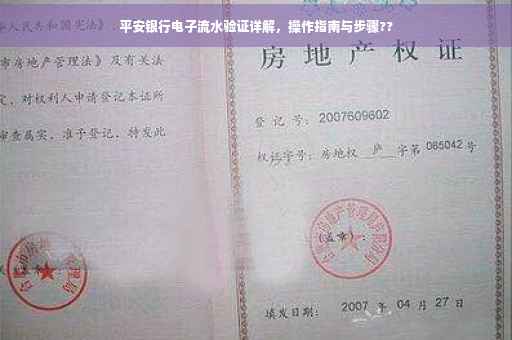 平安银行电子流水验证详解，操作指南与步骤??
华人民共和国宪法》
市房地产管理法》及有关法
定，对权利人申请登记本证所
审查属实，准予登记，特发此
房地产权证
登记号：2007609602
权证字号：房地权 庐 字第 065042 号
(盖章)：
填发日期：2007 年 04 月 27 日